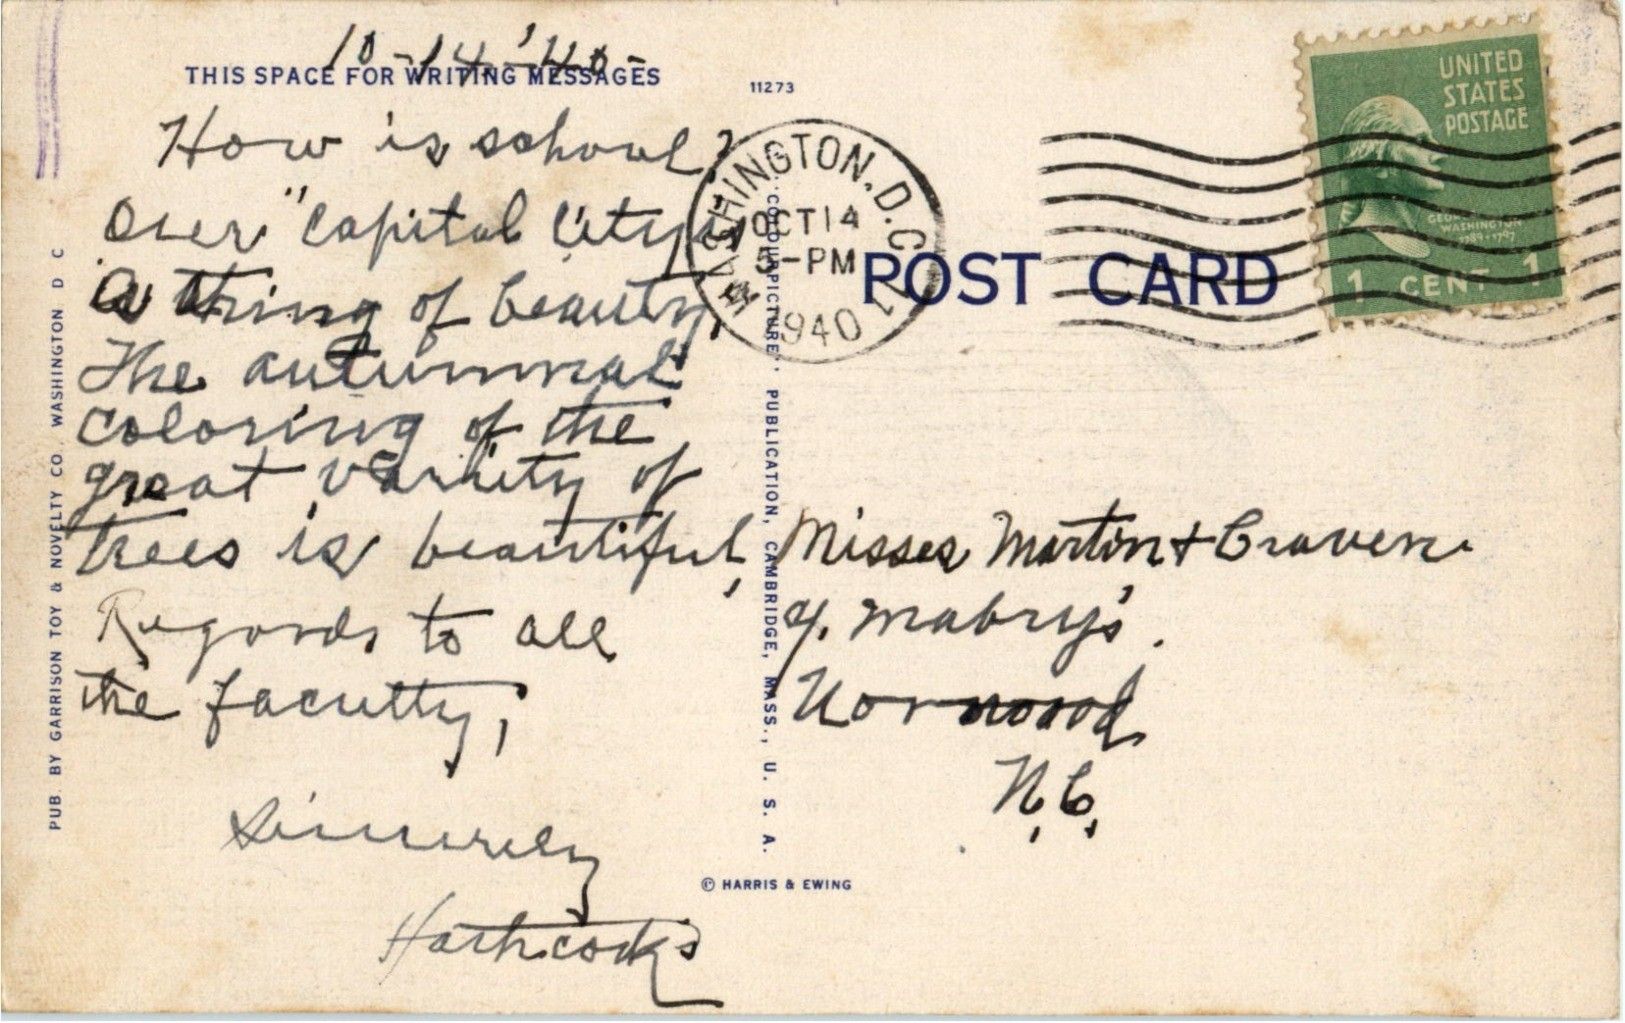 10-14-'40-
THIS SPACE FOR WRITING MESSAGES
11273
How is school?
Over "Capital City is
a thing of beauty.
The autumnal
coloring of the
great variety of
trees is beautiful,
Regards to all
the faculty,
Sincerely
Hathcock's
PUB. BY GARRISON TOY & NOVELTY CO. WASHINGTON D C
"COLOURPICTURE" PUBLICATION, CAMBRIDGE, MASS., U. S. A.
© HARRIS & EWING
WASHINGTON, D.C.
OCT 14
5-PM
1940
POST CARD
UNITED
STATES
POSTAGE
GEORGE
WASHINGTON
1789-1797
1 CENT 1
Misses Martin & Craven
Mabry's.
Norwood
N.C.